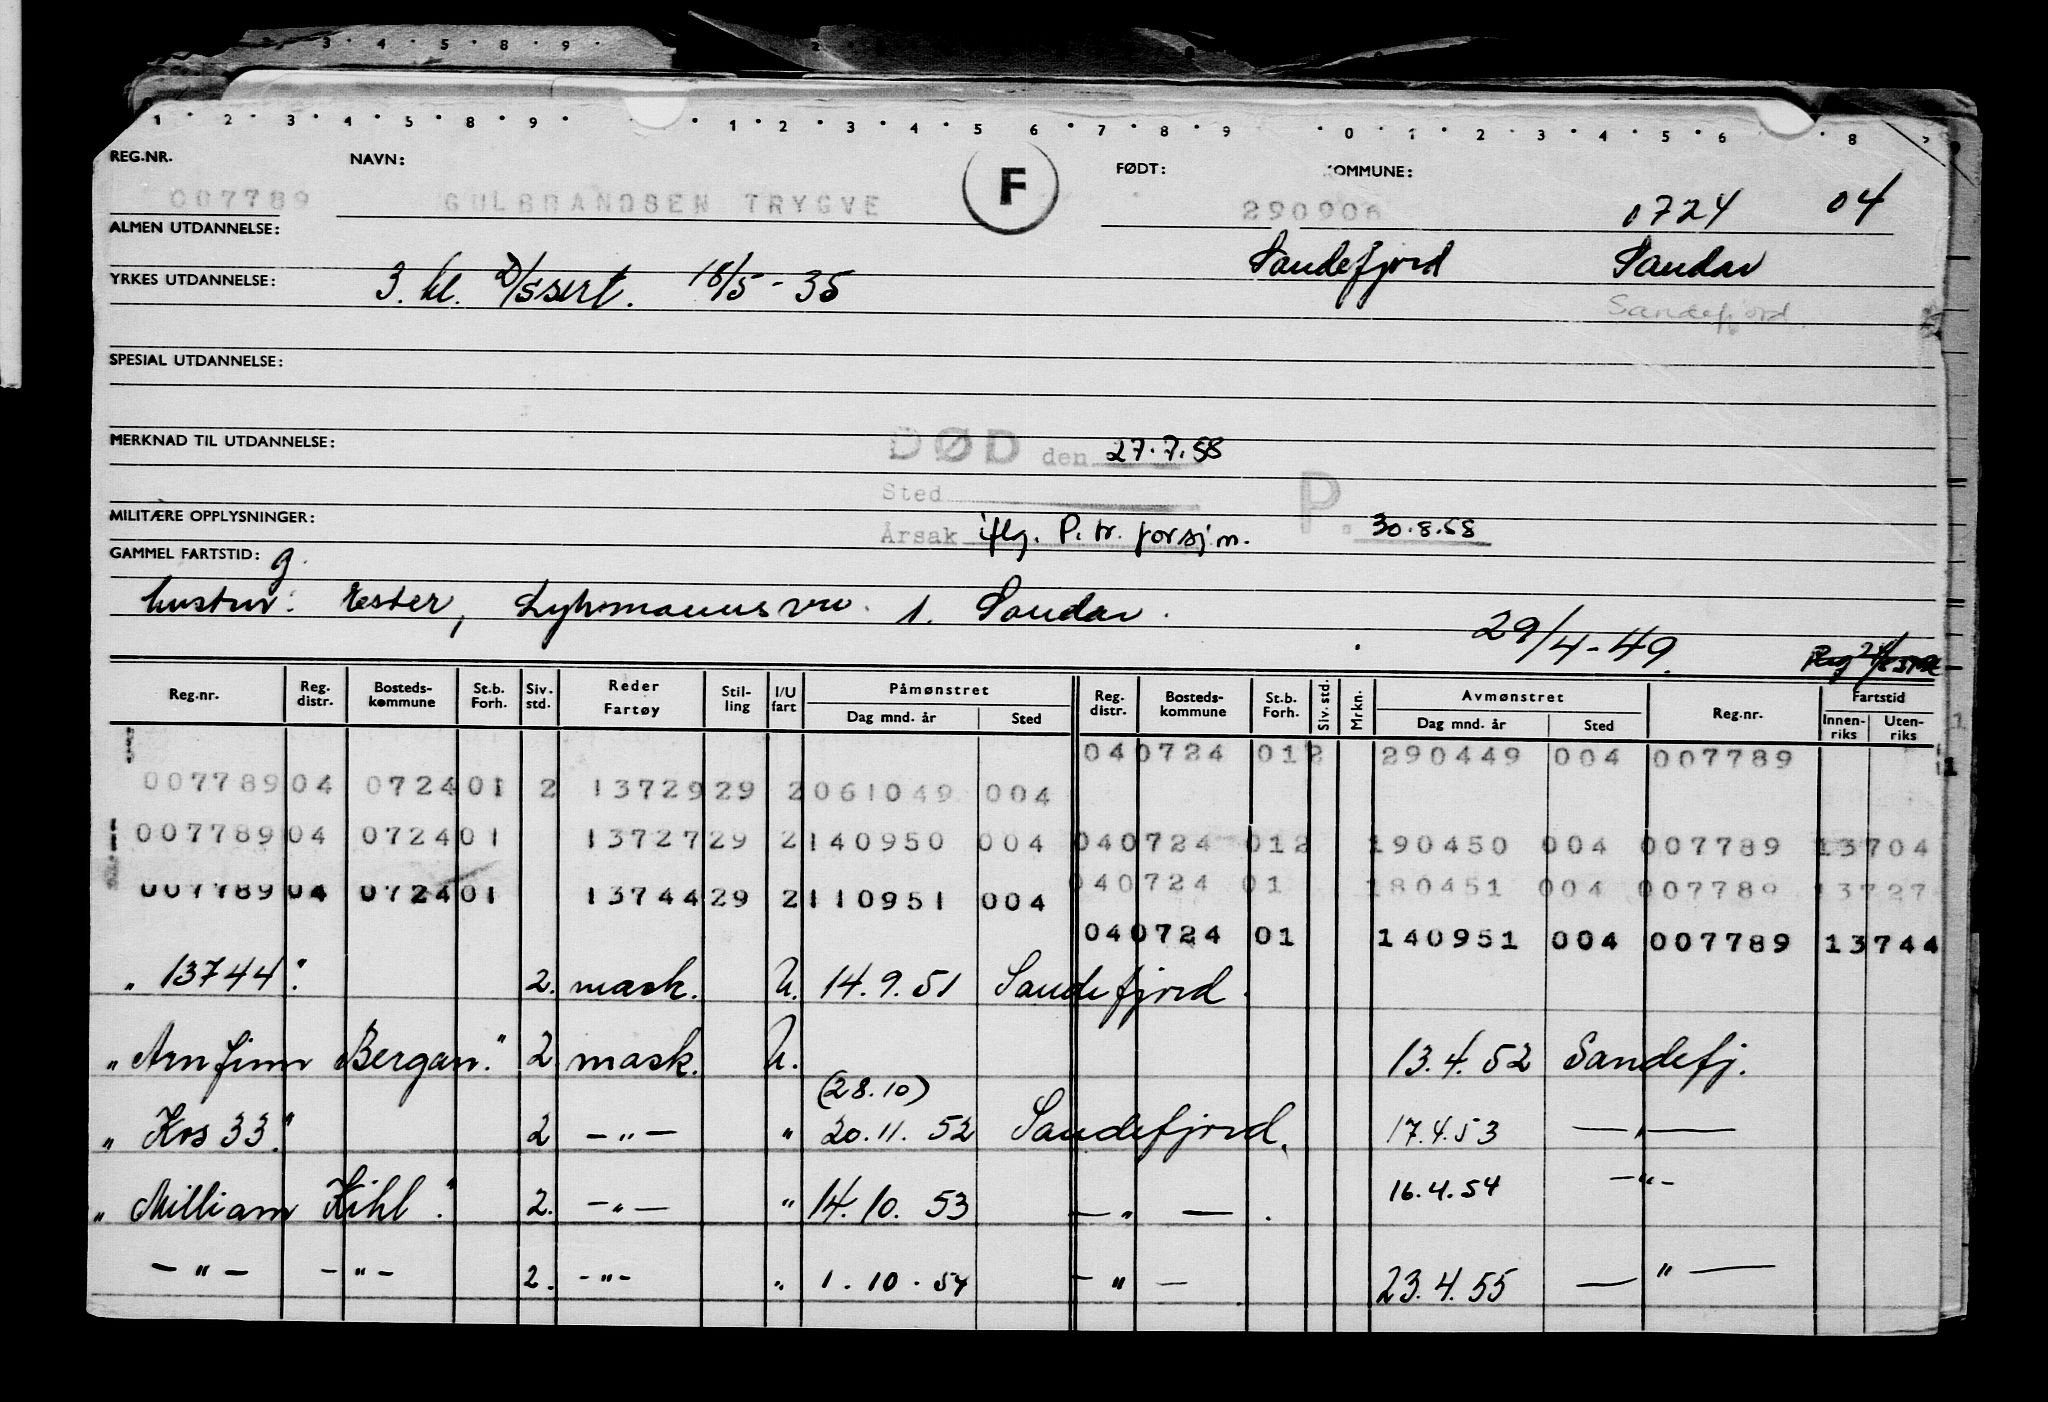 3 · 4 · 5 · 8 · 9 ·
1 · 2 · 3 · 4 · 5 · 8 · 9 · · 1 · 2 · 3 · 4 · 5 · 6 · 7 · 8 · 9 · 0 · 1 · 2 · 3 · 4 · 5 · 6 · 8
REG.NR. NAVN: F FØDT: KOMMUNE:
007789 GULBRANDSEN TRYGVE 290906 0724 04
ALMEN UTDANNELSE: Sandefjord Sandar
YRKES UTDANNELSE: 3. kl. D/ssert. 18/5-35
Sandefjord
SPESIAL UTDANNELSE:
MERKNAD TIL UTDANNELSE: DØD den 27.7.58
Sted P. 30.8.58
MILITÆRE OPPLYSNINGER: Årsak iflg. P. tr. forsj m.
GAMMEL FARTSTID: g.
hustru: Ester, 1. Sandar.
29/4-49.
Reg.nr. Reg. distr. Bosteds-kommune St.b. Forh. Siv. std. Reder Fartøy Stil-ling I/U fart Påmønstret Dag mnd. år Sted Reg. distr. Bosteds-kommune St.b. Forh. Siv. std. Mrkn. Avmønstret Dag mnd. år Sted Reg.nr. Fartstid Innen-riks Uten-riks
040724 012 290449 004 007789
007789 04 0724 01 2 13729 29 2 061049 004
007789 04 0724 01 13727 29 2 140950 004 040724 012 190450 004 007789 13704
007789 04 0724 01 13744 29 2 110951 004 040724 01 180451 004 007789 13727
040724 01 140951 004 007789 13744
„ 13744" 2. mask. U. 14.9.51 Sandefjord.
„ Arnfinn Bergan." 2 mask. U. 13.4.52 Sandefj.
(28.10)
„ Kos 33." 2 —"— " 20.11.52 Sandefjord. 17.4.53 —"—
„ William Kihl." 2. —"— " 14.10.53 —"—. 16.4.54 —"—
—"— —"— 2. —"— " 1.10.54 —"— 23.4.55 —"—